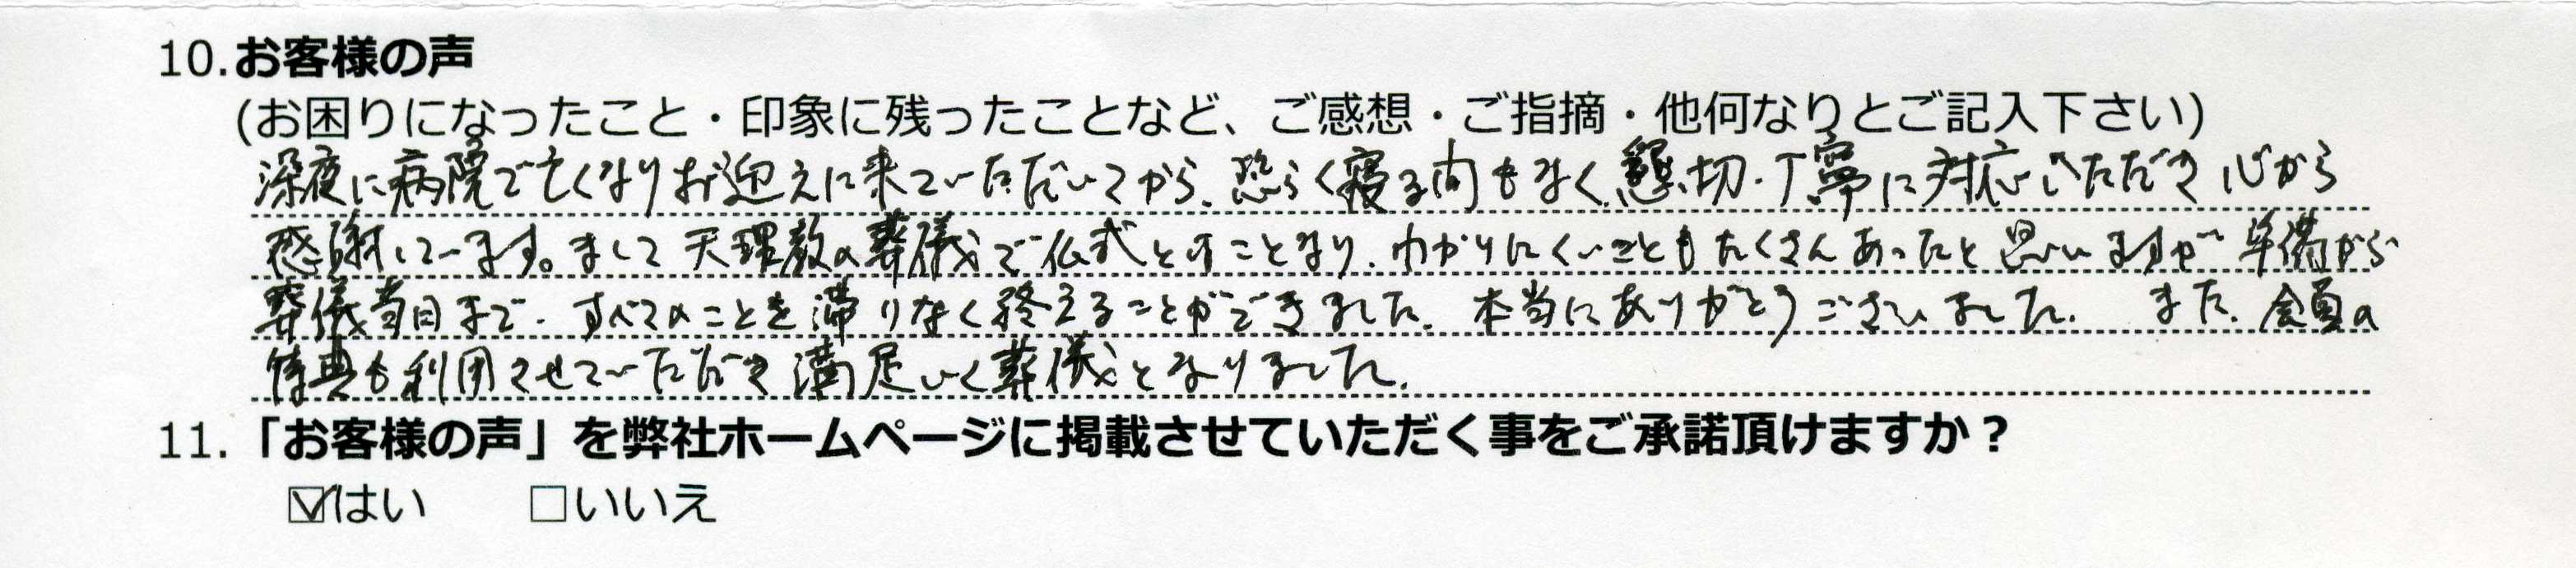 10.お客様の声
(お困りになったこと・印象に残ったことなど、ご感想・ご指摘・他何なりとご記入下さい)
深夜に病院で亡くなりお迎えに来ていただいてから、恐らく寝る間もなく、懇切・丁寧に対応いただき心から
感謝しています。まして天理教の葬儀で仏式とはことなり、わかりにくいこともたくさんあったと思いますが準備から
葬儀当日まで、すべてのことを滞りなく終えることができました。本当にありがとうございました。また、会員の
特典も利用させていただき満足いく葬儀となりました。
11.「お客様の声」を弊社ホームページに掲載させていただく事をご承諾頂けますか？
☑はい □いいえ